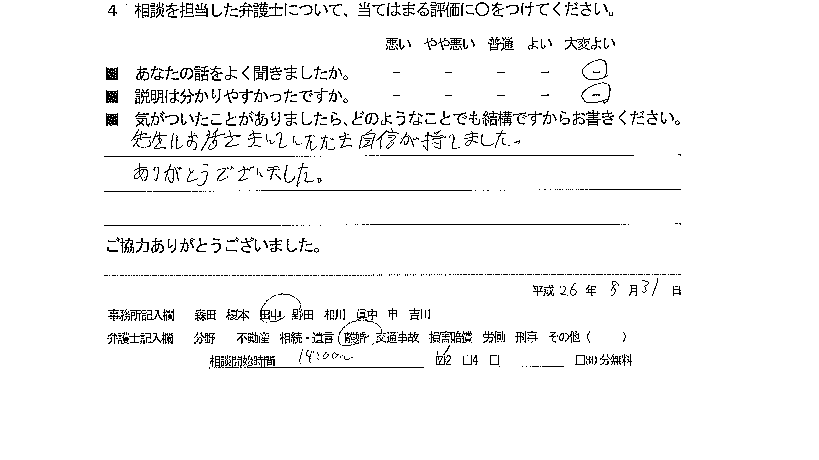 4 相談を担当した弁護士について、当てはまる評価に○をつけてください。
悪い やや悪い 普通 よい 大変よい
あなたの話をよく聞きましたか。 － － － － －
説明は分かりやすかったですか。 － － － － －
気がついたことがありましたら、どのようなことでも結構ですからお書きください。
先生にお話し 自信が持てました。
ありがとうございました。
ご協力ありがとうございました。
平成26年8月31日
事務所記入欄 森田 榎本 田山 野田 相川 申 吉川
弁護士記入欄 分野 不動産 相続・遺言 離婚 交通事故 損害賠償 労働 刑事 その他（ ）
相談開始時間 14:00 ☑2 □4 □ □30分無料